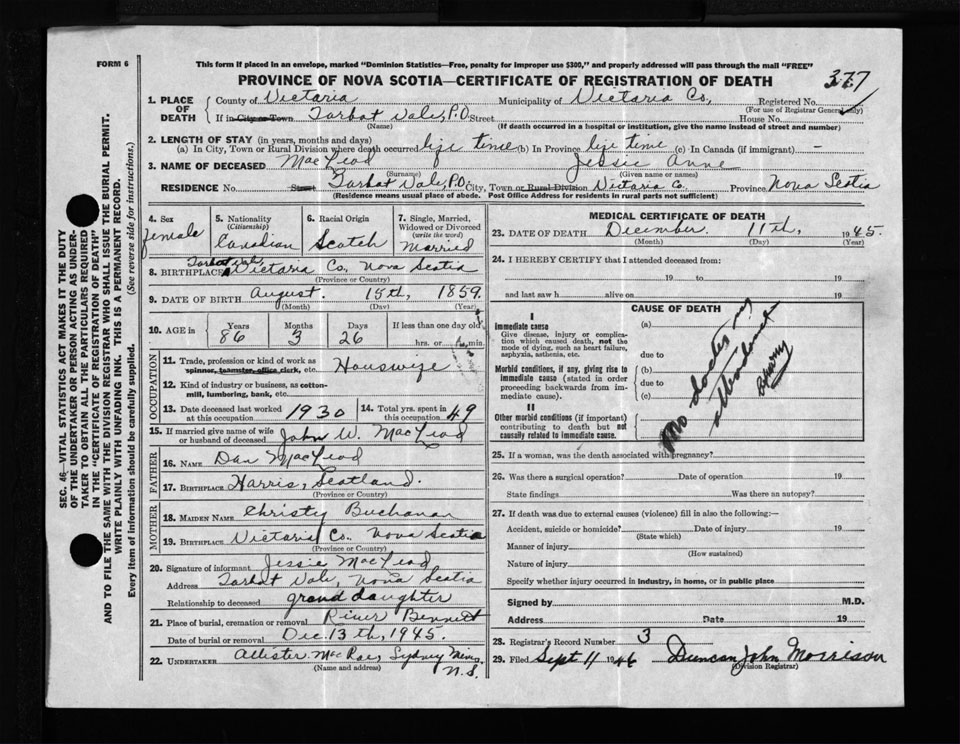 FORM 6
This form if placed in an envelope, marked "Dominion Statistics—Free, penalty for improper use $300," and properly addressed will pass through the mail "FREE"
PROVINCE OF NOVA SCOTIA—CERTIFICATE OF REGISTRATION OF DEATH
377
1. PLACE OF DEATH County of Victoria Municipality of Victoria Co, Registered No.
(For use of Registrar General only)
If in City or Town Tarbot Vale, P.O Street House No.
(Name) (If death occurred in a hospital or institution, give the name instead of street and number)
2. LENGTH OF STAY (in years, months and days)
(a) In City, Town or Rural Division where death occurred life time (b) In Province life time (c) In Canada (if immigrant) —
3. NAME OF DECEASED MacLeod Jessie Anne
(Surname) (Given name or names)
RESIDENCE No. Street Tarbot Vale, P.O. City, Town or Rural Division Victoria Co. Province Nova Scotia
(Residence means usual place of abode. Post Office Address for residents in rural parts not sufficient)
4. Sex female
5. Nationality (Citizenship) Canadian
6. Racial Origin Scotch
7. Single, Married, Widowed or Divorced (write the word) Married
8. BIRTHPLACE Tarbot Vale, Victoria Co, Nova Scotia
(Province or Country)
9. DATE OF BIRTH August. 15th, 1859.
(Month) (Day) (Year)
10. AGE in Years 86 Months 3 Days 26 If less than one day old hrs. or min.
OCCUPATION
11. Trade, profession or kind of work as spinner, teamster, office clerk, etc. Houswife
12. Kind of industry or business, as cotton-mill, lumbering, bank, etc.
13. Date deceased last worked at this occupation 1930
14. Total yrs. spent in this occupation 49
15. If married give name of wife or husband of deceased John W. MacLeod
FATHER
16. NAME Dan MacLeod
17. BIRTHPLACE Harris, Scotland.
(Province or Country)
MOTHER
18. MAIDEN NAME Christy Buchanan
19. BIRTHPLACE Victoria Co. Nova Scotia
(Province or Country)
20. Signature of informant Jessie MacLeod
Address Tarbot Vale, Nova Scotia
Relationship to deceased grand daughter
21. Place of burial, cremation or removal River Bennett
Date of burial or removal Dec. 13th, 1945.
22. UNDERTAKER Allister MacRae, Sydney Mines N.S.
(Name and address)
MEDICAL CERTIFICATE OF DEATH
23. DATE OF DEATH December. 11th, 1945.
(Month) (Day) (Year)
24. I HEREBY CERTIFY that I attended deceased from:
19 to 19
and last saw h alive on 19
CAUSE OF DEATH
I
Immediate cause
Give disease, injury or complication which caused death, not the mode of dying, such as heart failure, asphyxia, asthenia, etc.
Morbid conditions, if any, giving rise to immediate cause (stated in order proceeding backwards from immediate cause).
II
Other morbid conditions (if important) contributing to death but not causally related to immediate cause.
(a)
due to
(b)
due to
(c)
No doctor in attendance
25. If a woman, was the death associated with pregnancy?
26. Was there a surgical operation? Date of operation 19
State findings Was there an autopsy?
27. If death was due to external causes (violence) fill in also the following:—
Accident, suicide or homicide? Date of injury 19
(State which)
Manner of injury
(How sustained)
Nature of injury
Specify whether injury occurred in industry, in home, or in public place
Signed by M.D.
Address Date 19
28. Registrar's Record Number 3
29. Filed Sept 11 1946 Duncan John Morrison
(Division Registrar)
SEC. 46—VITAL STATISTICS ACT MAKES IT THE DUTY
OF THE UNDERTAKER OR PERSON ACTING AS UNDER-
TAKER TO OBTAIN ALL THE PARTICULARS REQUIRED
IN THE "CERTIFICATE OF REGISTRATION OF DEATH"
AND TO FILE THE SAME WITH THE DIVISION REGISTRAR WHO SHALL ISSUE THE BURIAL PERMIT.
WRITE PLAINLY WITH UNFADING INK. THIS IS A PERMANENT RECORD.
Every item of information should be carefully supplied. (See reverse side for instructions.)